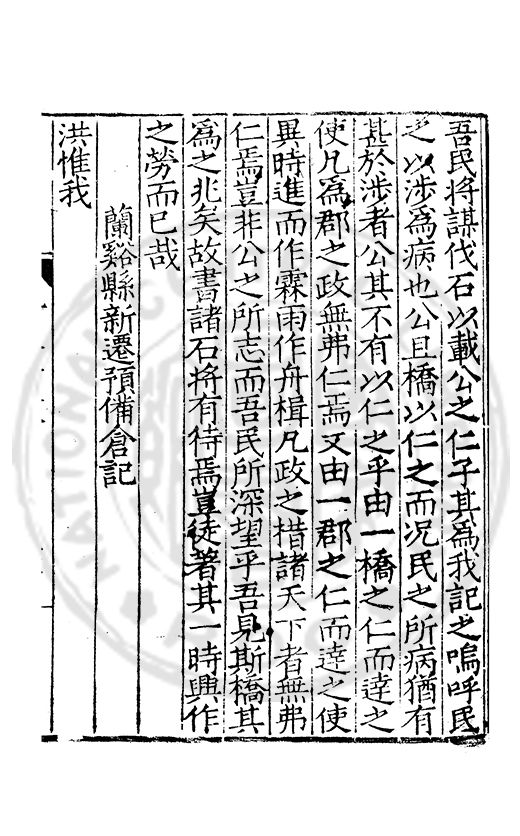 吾民將謀伐石以載公之仁子其爲我記之嗚呼民
之以渉爲病也公且橋以仁之而况民之所病猶有
甚於渉者公其不有以仁之乎由一橋之仁而達之
使凡爲郡之政無弗仁焉又由一郡之仁而達之使
異時進而作霖雨作舟楫凡政之措諸天下者無弗
仁焉豈非公之所志而吾民所深望乎吾見斯橋其
爲之兆矣故書諸石將有待焉豈徒著其一時興作
之勞而已哉
蘭谿縣新遷預備倉記
洪惟我